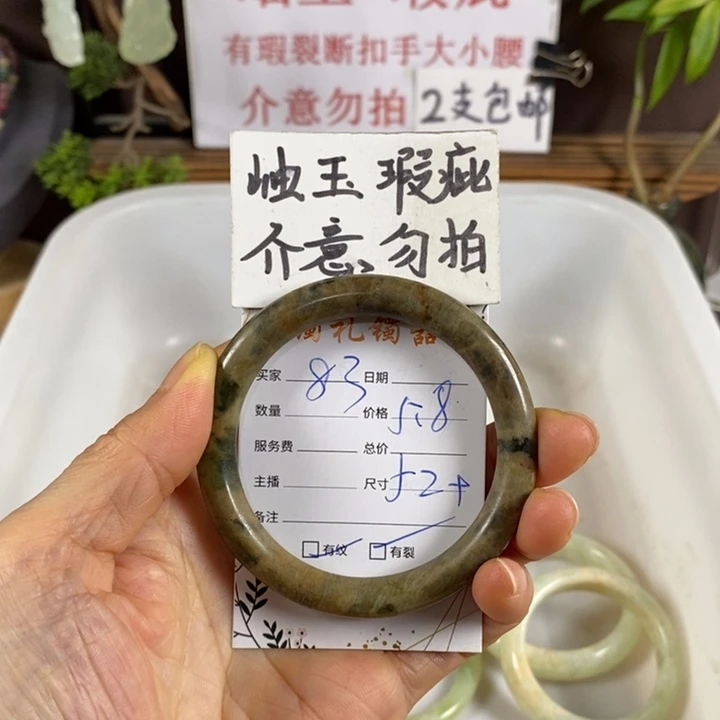 有瑕裂断扣手大小腰
介意勿拍 2支包邮
岫玉 瑕疵
介意 勿拍
买家 83 日期
数量 价格 5.8
服务费 总价
主播 尺寸 52+
备注
□有纹 □有裂